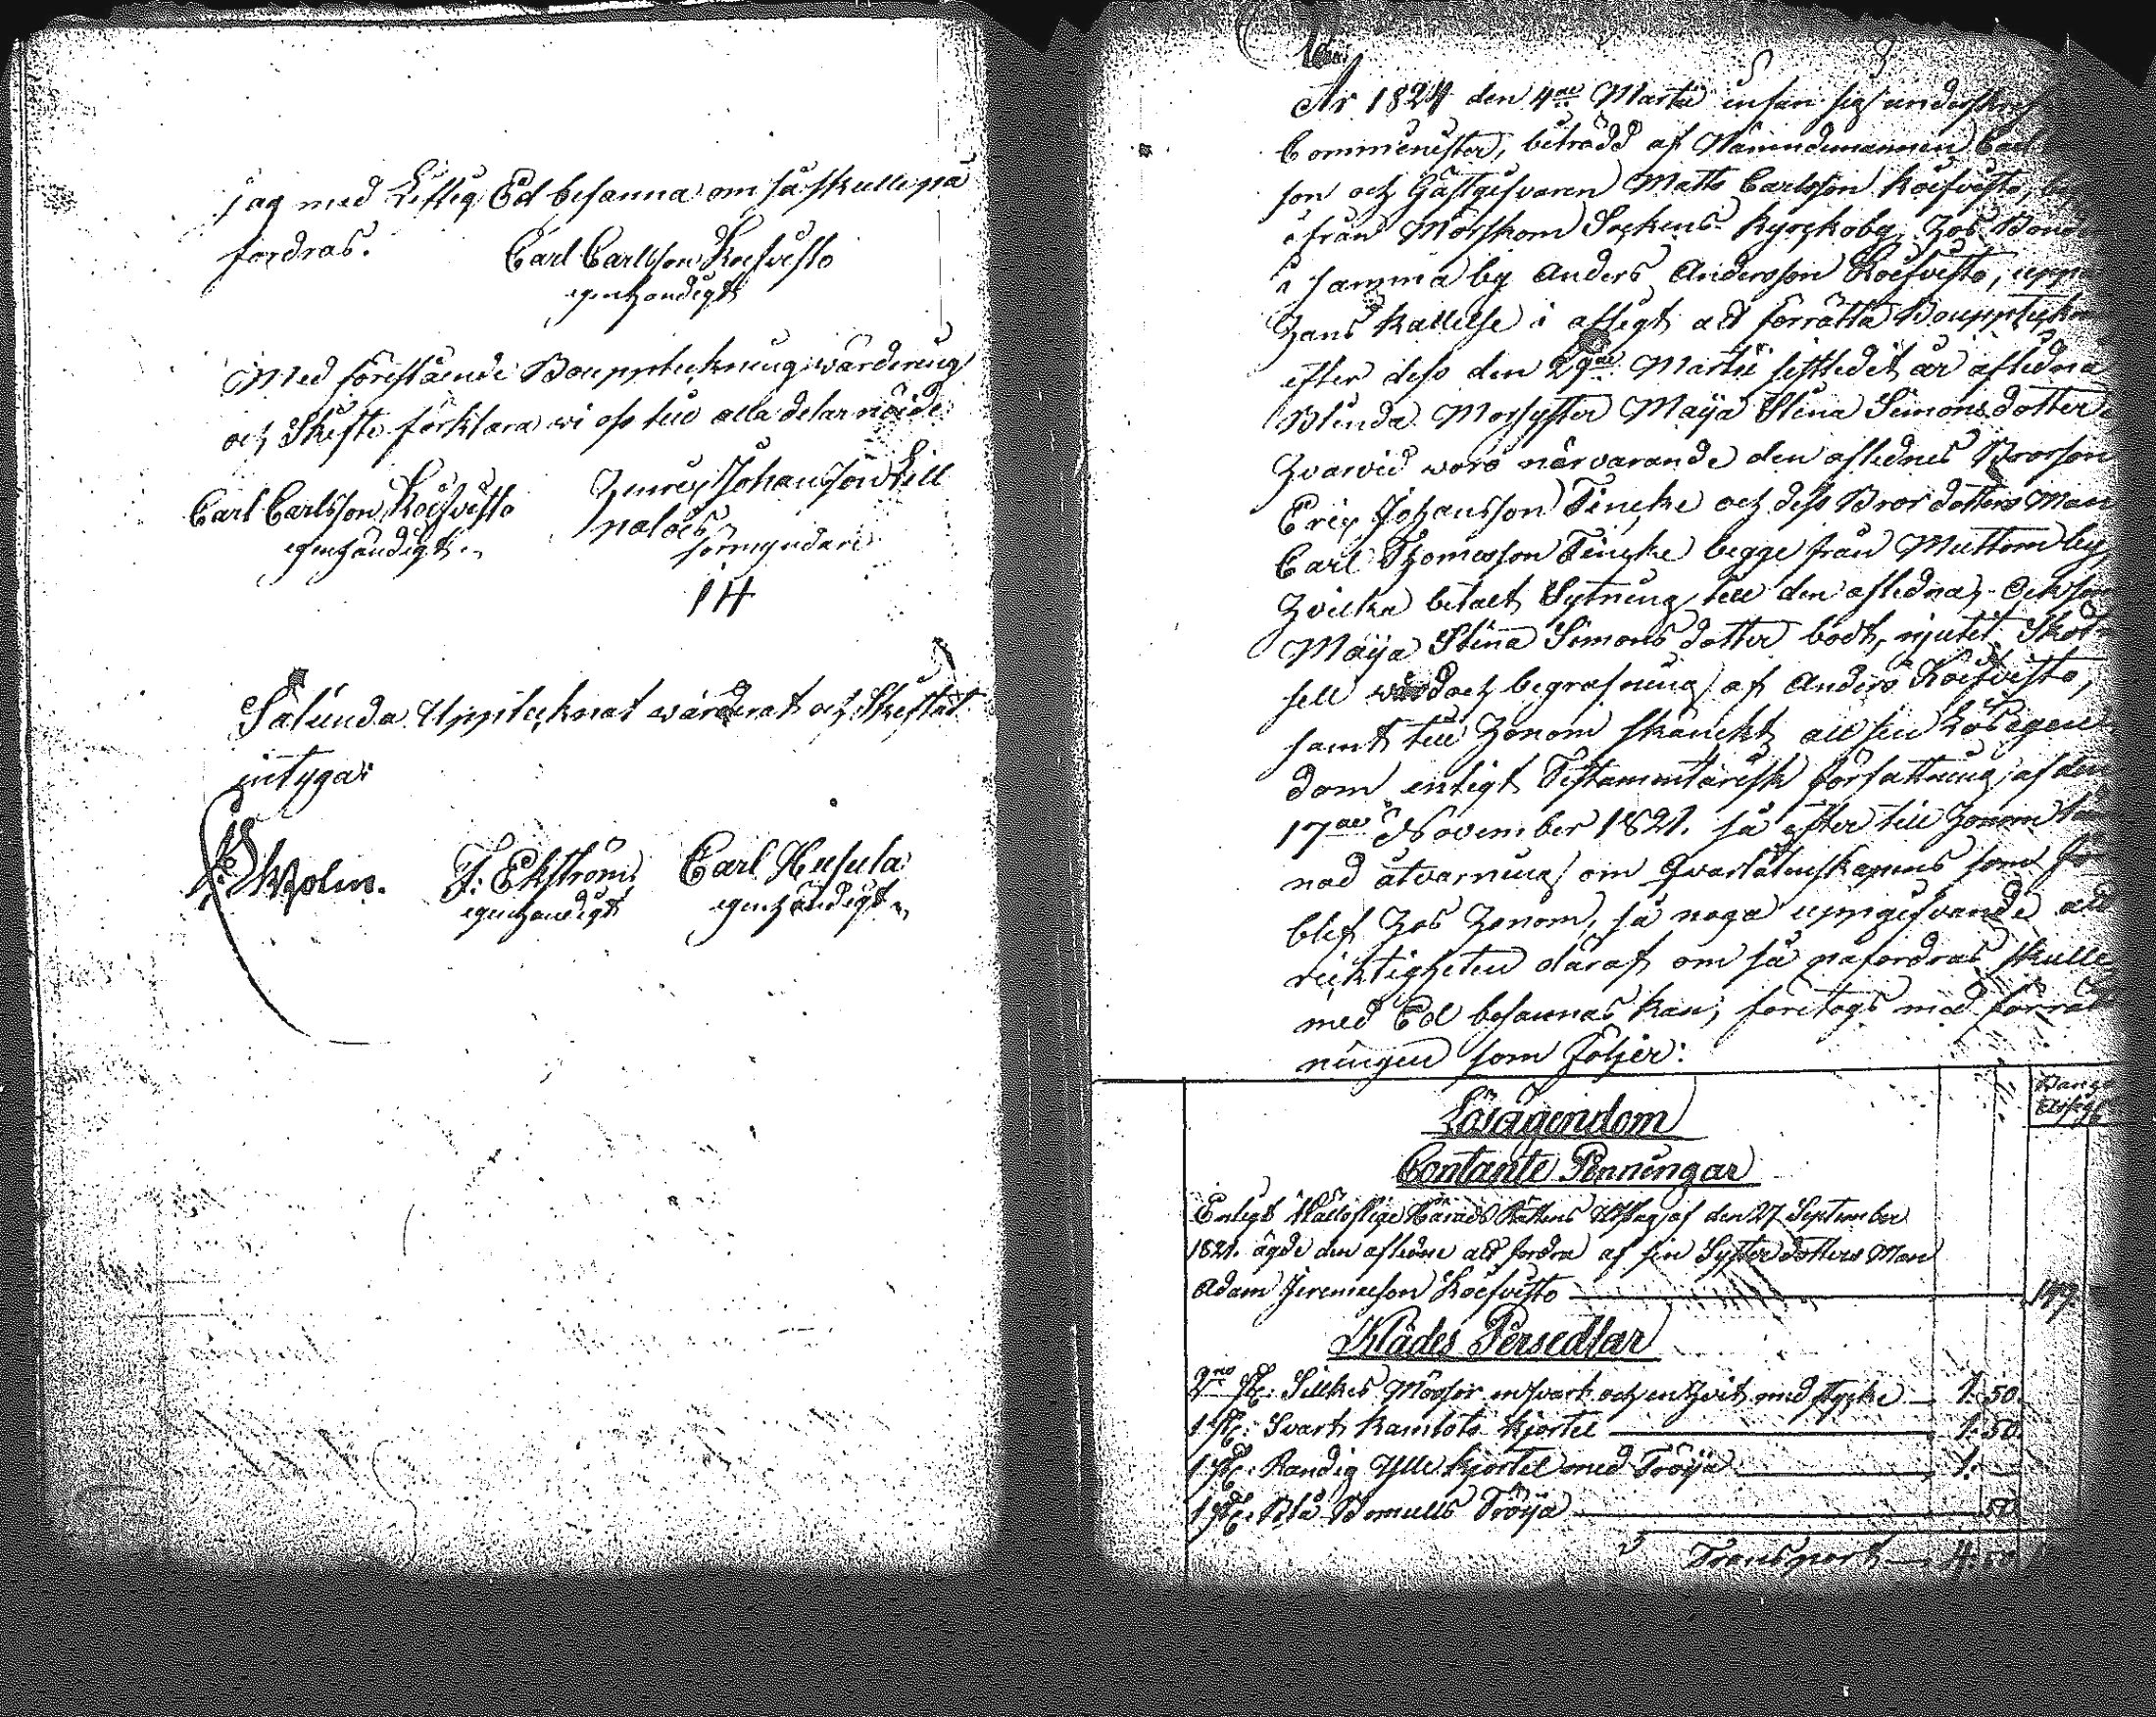 jag med Liflig Ed besanna om så skulle på
fordras.
Carl Carlsson Koifvisto
egenhändigt
Med förestående Bouppteckning wärdering
och Skifte förklara wi oss till alla delar nöjde
Carl Carlsson Koifvisto
egenhändigt
Henric Johansson Sill
förmyndare
Sålunda Uppteknat wärderat och Skiftat
intygar
F: Ekström
egenhändigt
Carl Husula
egenhändigt
År 1824 den 4de Martii infan sig
Comminister, biträdd af Nämndemannen Carl
son och Gästgifvaren Matts Carlsson Koifvisto,
ifrån Mörskom Sockens Kyrckoby, hos
i samma by Anders Andersson Koifvisto,
hans kallelse i afsigt att förrätta
efter dess den 29de Martii sistledit år aflidna
Blinda Morsyster Maija Stina Simonsdotter
hvarvid woro närvarande den aflednes Brorson
Eric Johansson Tincke och dess Brordotters Man
Carl Thomasson Tincke begge från Muttom by,
hvilka betalt Sytning till den aflidna,
Maija Stina Simons dotter bodt, njutit
sell wård och begrafning af Anders Koifvisto,
samt till honom skänckt all sin Lösegen
dom enligt Testamentarisk författning af den
17de November 1821. så efter till honom
nad åtvarning om qvarlåtenskapens
blef hos honom, så noga uppgifvande att
riktigheten däraf om så påfordras skulle
med Ed besannas kan; företogs med förrätt
ningen som följer:
Lösägendom
Contante Penningar
Enligt Wällofl­ige Härads Rättens Utslag af den 27 September
1821. ägde den aflidne att fordra af sin Systerdotters Man
Adam Jeremiesson Koifvisto
Klädes Persedlar
2ne st: Silkes Mössor en svart och en hvit med stycke 1: 50.
1 st: Svart Kamlots kjortel 1: 50.
1 st: Randig Ylle kjortel med Tröija 1:
1 st: Blå Bomulls Tröija 50
Transport 4: 50